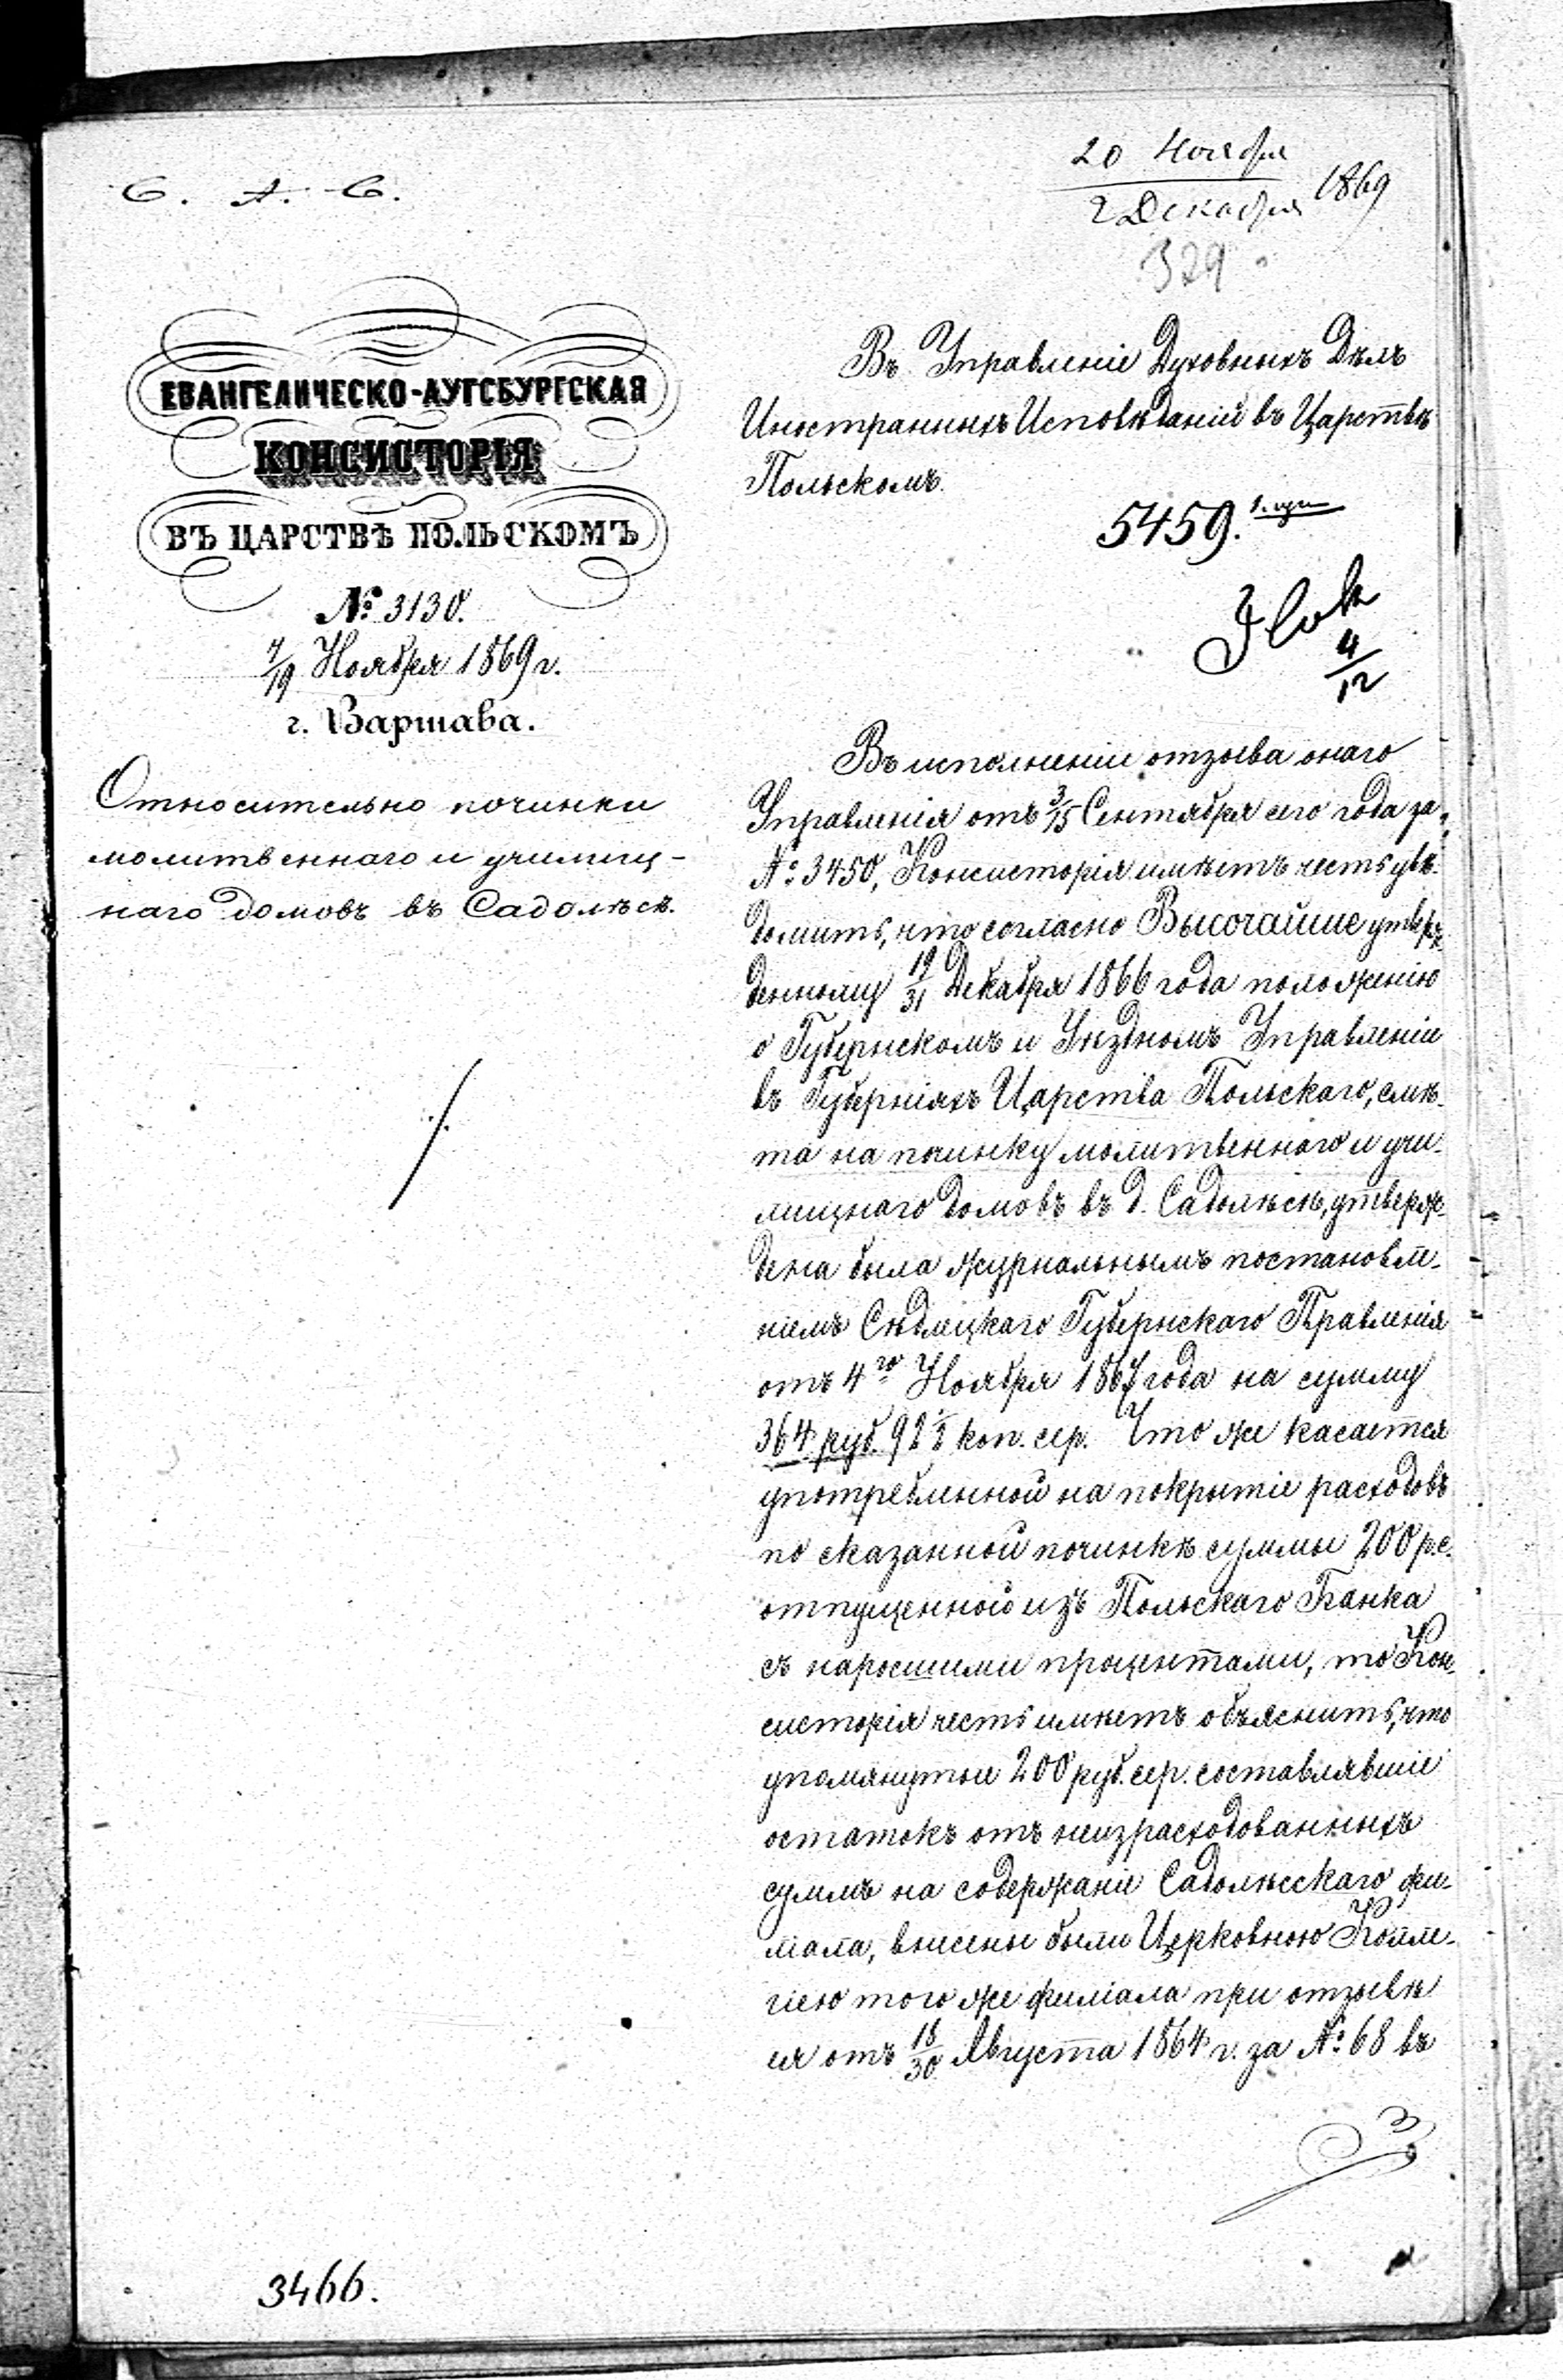 С. А. С.
20 Ноября
2 Декабря 1869
329
ЕВАНГЕЛИЧЕСКО-АУГСБУРГСКАЯ
КОНСИСТОРІЯ
ВЪ ЦАРСТВѢ ПОЛЬСКОМЪ
№ 3130.
7/19 Ноября 1869 г.
г. Варшава.
Относительно починки
молитвеннаго и училищ-
наго домовъ въ Садолѣсѣ.
Въ Управленіе Духовныхъ Дѣлъ
Иностранныхъ Исповѣданій въ Царствѣ
Польскомъ.
5459.
4/12
Въ исполненіи отзыва онаго
Управленія отъ 3/15 Сентября сего года за
№ 3450, Консисторія имѣетъ честь увѣ-
домить, что согласно Высочайше утверж-
денному 19/31 Декабря 1866 года положенію
о Губернскомъ и Уѣздномъ Управленіи
въ Губерніяхъ Царства Польскаго, смѣ-
та на починку молитвеннаго и учи-
лищнаго домовъ въ д. Садолѣсѣ, утверж-
дена была журнальнымъ постановле-
ніемъ Сѣдлецкаго Губернскаго Правленія
отъ 4го Ноября 1867 года на сумму
364 руб. 92½ коп. сер. Что же касается
употребленной на покрытіе расходовъ
по сказанной починкѣ суммы 200 р.с.
отпущенной изъ Польскаго Банка
съ наросшими процентами, то Кон-
систорія честь имѣетъ объяснить, что
упомянутые 200 руб. сер. составлявшіе
остатокъ отъ неизрасходованныхъ
суммъ на содержаніе Садолѣсскаго фи-
ліала, внесены были Церковною Колле-
гіею того же филіала при отзывѣ
ея отъ 18/30 Августа 1864 г. за № 68 въ
3466.